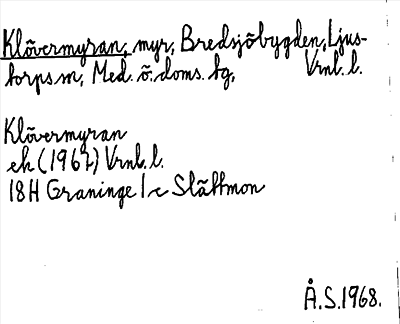 Klövermyran, myr, Bredsjöbygden, Ljus-
torps sn, Med. ö. doms. tg, Vrnl. l.
Klövermyran
ek (1967) Vrnl. l.
18H Graninge 1 c Slättmon
Å.S. 1968.